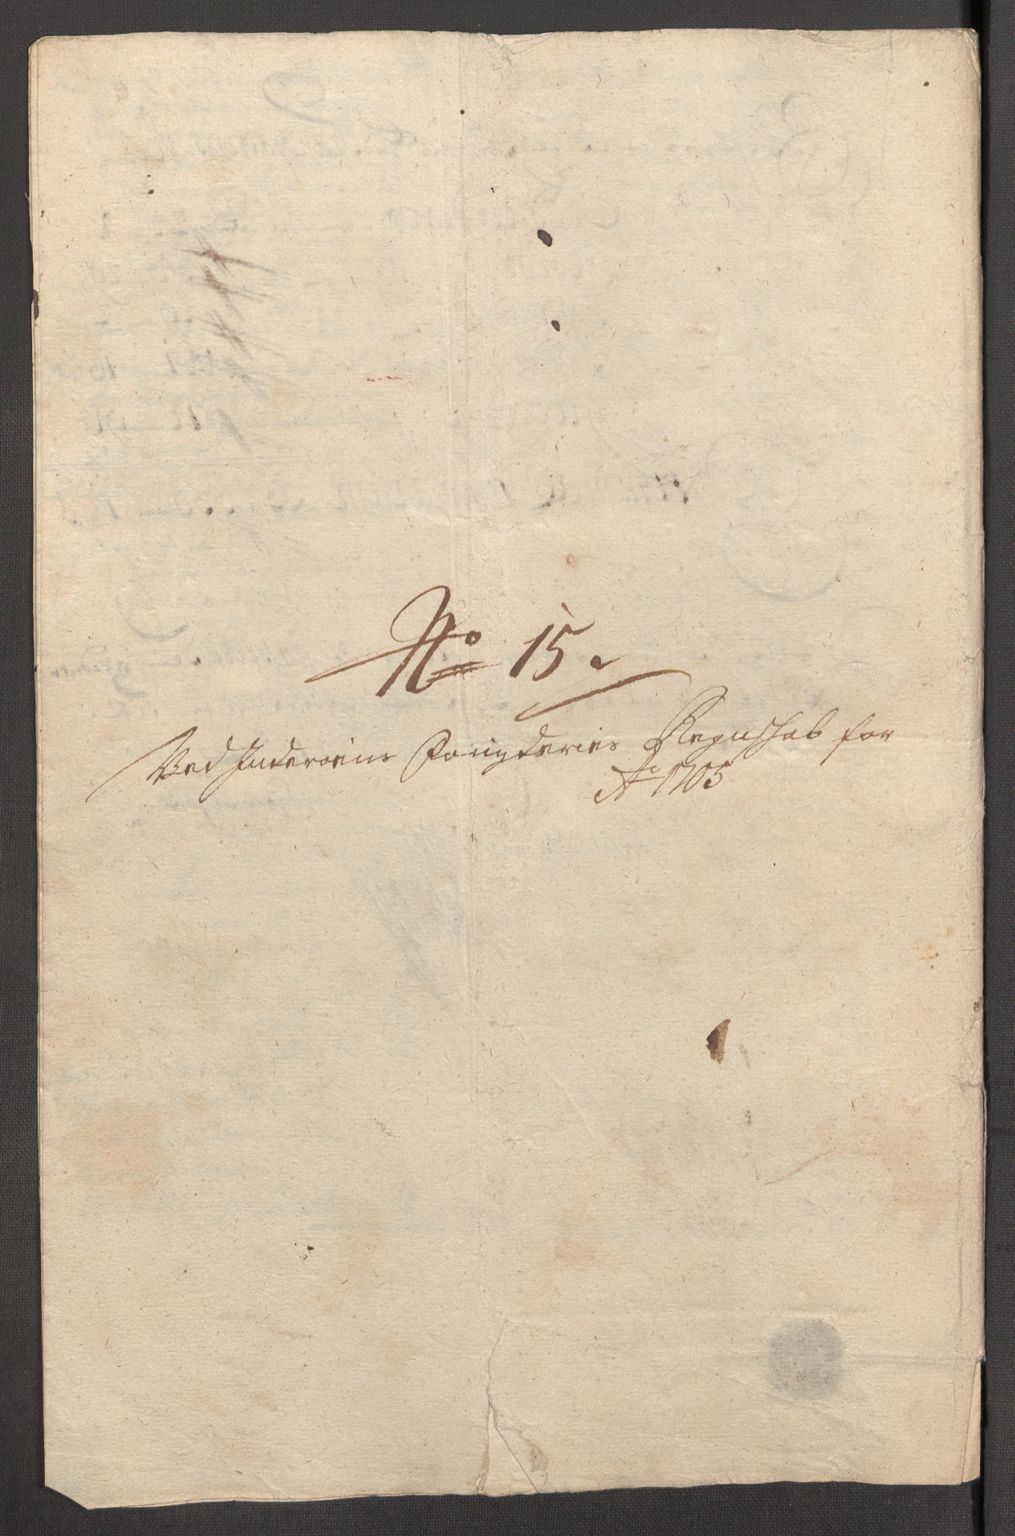 No 15.
Ved Inderøens Fougderies Regnskab for
Ao 1705